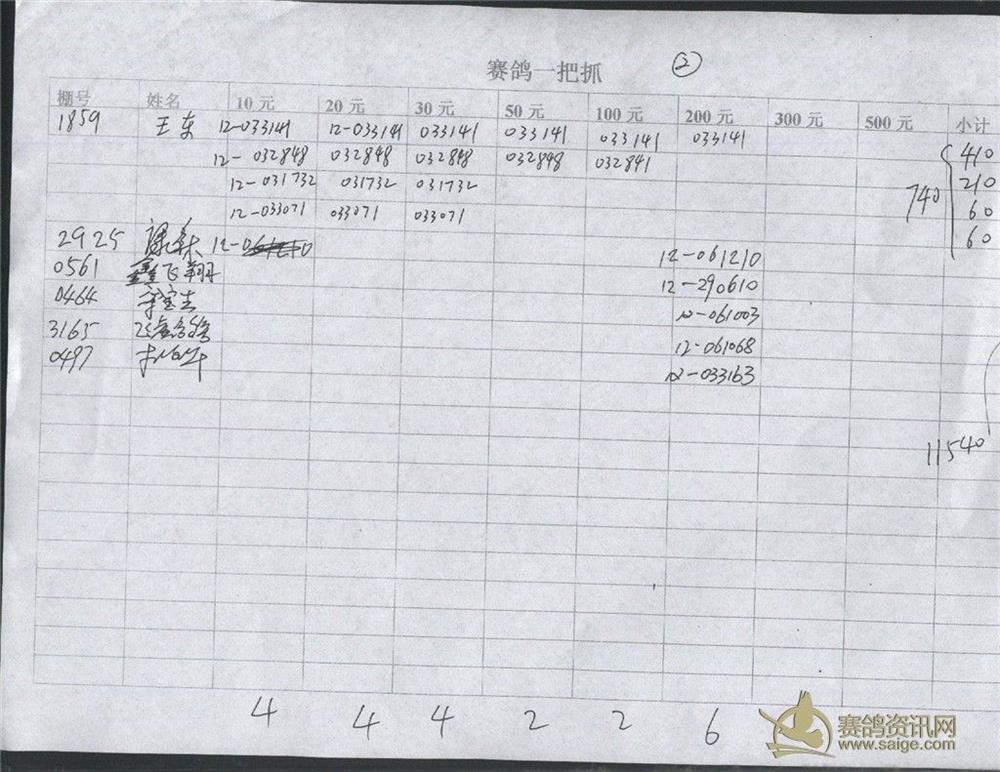 赛鸽一把抓 ②
棚号 姓名 10 元 20 元 30 元 50 元 100 元 200 元 300 元 500 元 小计
1859 王东 12-033141 12-033141 033141 033141 033141 033141 410
12-032848 032848 032848 032848 032841 210
12-031732 031732 031732 740 60
12-033071 033071 033071 60
2925 12-061210 12-061210
0561 鑫飞翔 12-290610
0464 12-061003
3165 12-061068
0497 12-033163
11540
4 4 4 2 2 6
赛鸽资讯网
www.saige.com